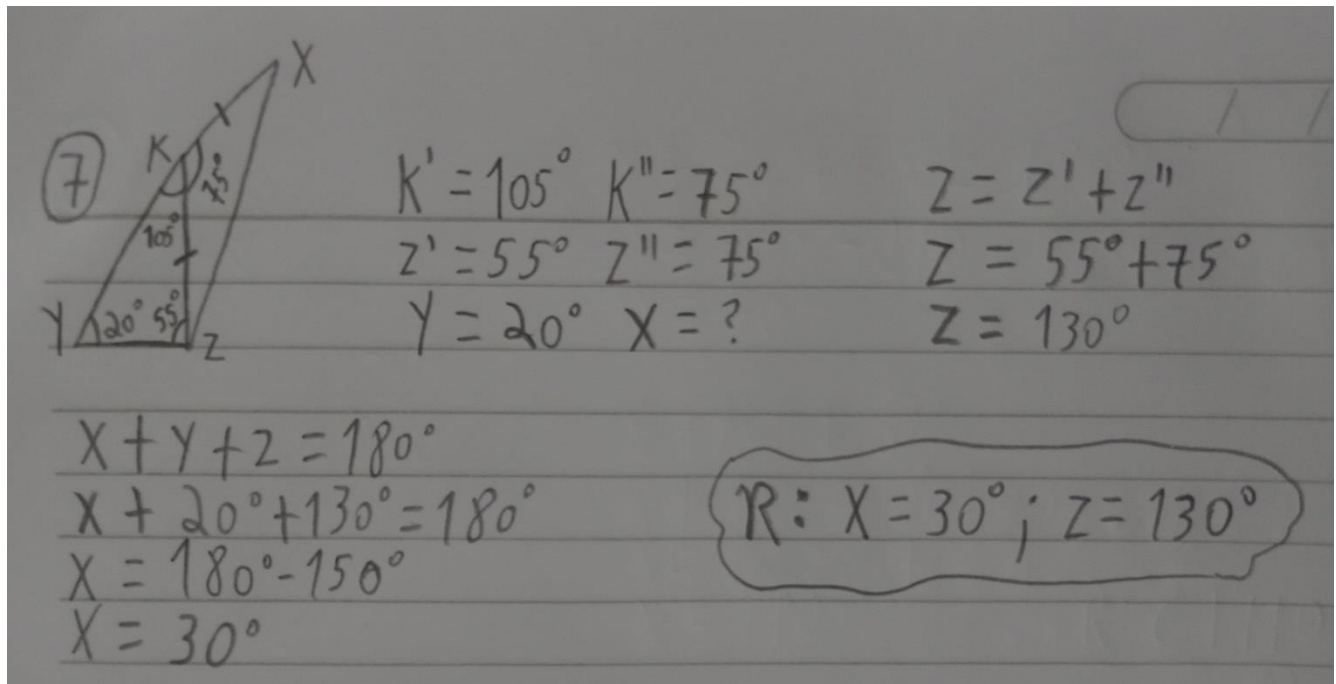 7
X
K
75°
105°
Y 20° 55° Z
K' = 105° K" = 75°
Z' = 55° Z" = 75°
Y = 20° X = ?
Z = Z' + Z"
Z = 55° + 75°
Z = 130°
X + Y + Z = 180°
X + 20° + 130° = 180°
X = 180° - 150°
X = 30°
R: X = 30°; Z = 130°